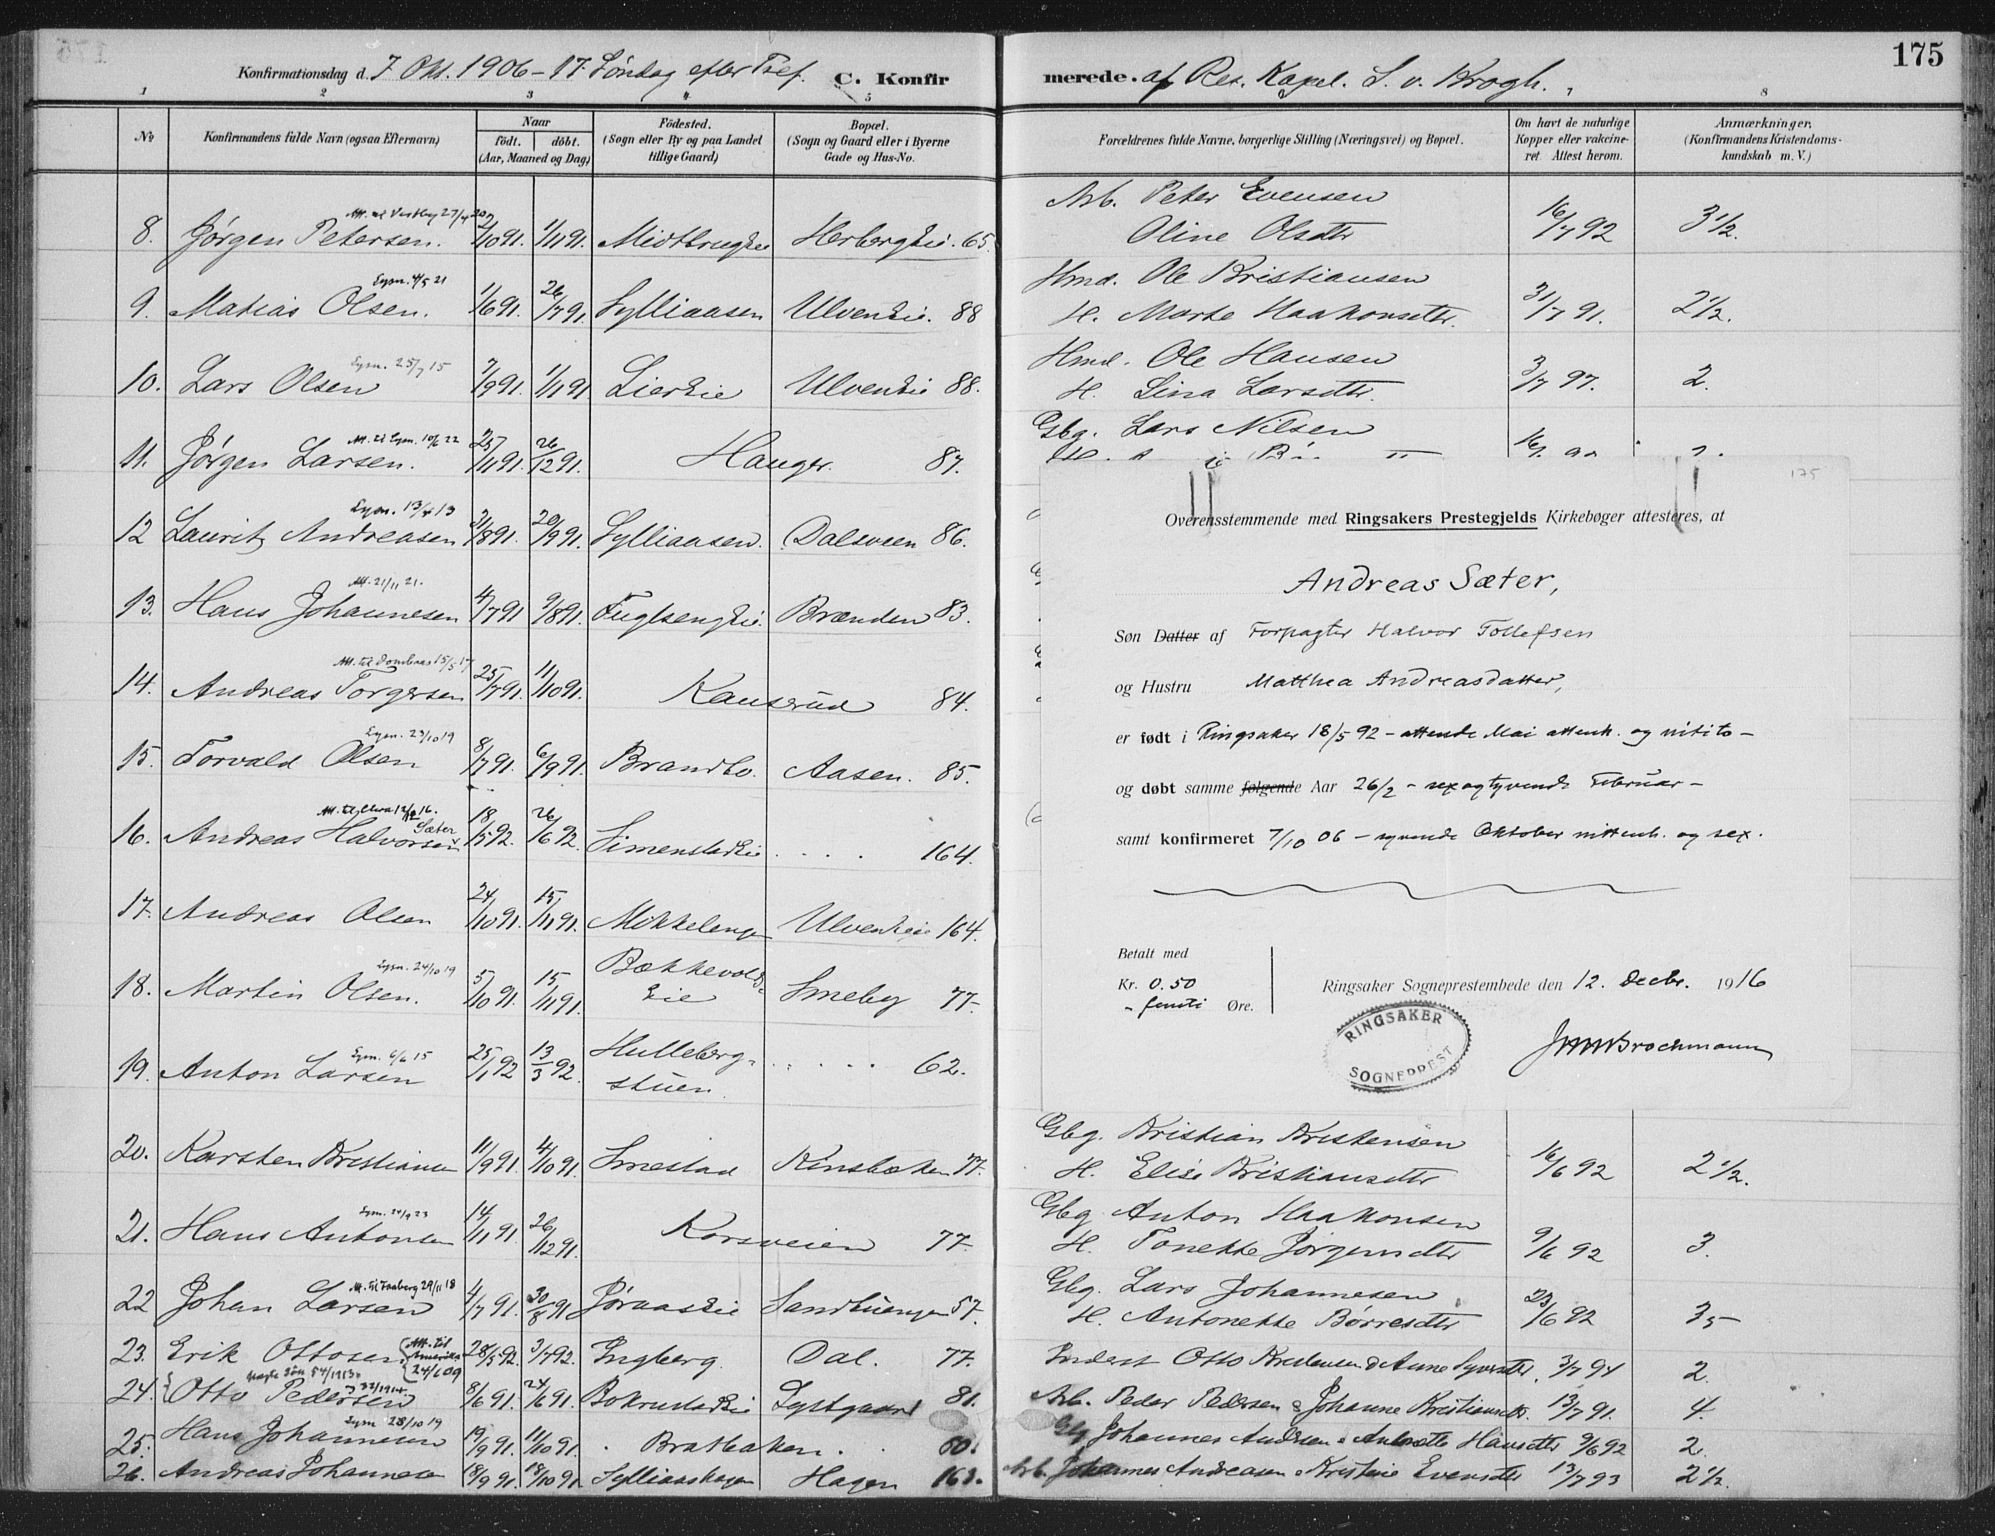 175
Konfirmationsdag d. 7 Okt. 1906 - 17. Söndag efter Tref. C. Konfirmerede. af Res. Kapel. S. v. Krogh.
1 2 3 4 5 7 8
No
Konfirmandens fulde Navn (ogsaa Efternavn)
Naar
födt. döbt.
(Aar, Maaned og Dag)
Födested.
(Sogn eller By og paa Landet
tillige Gaard)
Bopæl.
(Sogn og Gaard eller i Byerne
Gade og Hus-No.
Forældrenes fulde Navne, borgerlige Stilling (Næringsvei) og Bopæl.
Om havt de naturlige
Kopper eller vakcine-
ret Attest herom.
Anmærkninger,
(Konfirmandens Kristendoms-
kundskab m. V.)
Att. til Vestby 27/4 20
8. Jörgen Petersen. 2/10 91. 1/11 91. Midtbrugeie Herbergeie. 65
Arb. Peter Evensen
Oline Olsdtr 16/7 92 3 1/2.
Lysn. 4/5 21
9. Matias Olsen. 1/6 91. 26/7 91. Sylliaasen Ulveneie. 88
Hmd. Ole Kristiansen
H. Marte Haakonsdtr. 31/7 91. 2 1/2.
Lysn. 25/7 15
10. Lars Olsen 7/9 91. 1/11 91 Liereie Ulveneie 88.
Hmd. Ole Hansen
H. Lina Larsdtr. 3/7 97. 2.
Att. til Lysn. 10/6 22
11. Jörgen Larsen. 25/11 91. 26/12 91. Hauger. 87.
Gbg. Lars Nilsen
Lysn. 13/4 13
12 Laurits Andreasen 31/8 91. 20/9 91. Sylliaasen. Dalsveen 86.
Att. 21/11 21.
13. Hans Johannesen 4/7 91 9/8 91. Fuglsengeie. Brænden 83.
Att. til Dombaas 15/5 17
14. Andreas Torgersen 25/7 91. 11/10 91. Kauserud 84.
Lysn. 23/10 19
15. Torvald Olsen 8/7 91. 6/9 91. Brandbo. Aasen. 85.
Att. til Elvra 12/12 16.
Sæter
16. Andreas Halvorsen 18/5 92. 26/6 92. Simenstadeie . . . . 164.
17. Andreas Olsen 24/10 91. 15/11 91. Mokkelengen Ulveneie 164.
Lysn. 24/10 19
18. Martin Olsen. 5/10 91. 15/11 91. Bækkevolds-
eie Smeby 77.
Lysn. 6/6 15
19. Anton Larsen 25/1 92 13/3 92. Hulleberg-
stuen . . . . . 62.
175
Overensstemmende med Ringsakers Prestegjelds Kirkebøger attesteres, at
Andreas Sæter,
Søn Datter af Forpagter Halvor Tollefsen
og Hustru Matthea Andreasdatter,
er født i Ringsaker 18/5 92 - attende Mai attenh. og nitito -
og døbt samme følgende Aar 26/2 - sex og tyvende Februar -
samt konfirmeret 7/10 06 - syvende Oktober nittenh. og sex.
Betalt med
Kr. 0.50
- femti Øre.
Ringsaker Sogneprestembede den 12. Decbr. 1916
RINGSAKER
SOGNEPREST
Brochmann
20. Karsten Kristiansen 11/9 91. 4/10 91. Smestad Kinsbæken 77.
Gbg. Kristian Kristensen
H. Elise Kristiansdtr 16/6 92 2 1/2.
Lysn. 24/9 23
21. Hans Antonsen 14/11 91 26/12 91. Korsveien 77.
Gbg. Anton Haakonsen
H. Tonette Jörgensdtr 9/6 92 3.
Att. til Faaberg 29/11 18
22 Johan Larsen 4/7 91. 30/8 91 Jöraaseie Sandtuengen 57.
Gbg. Lars Johannesen
H. Antonette Börresdtr 23/6 92 3 -
23. Erik Ottosen Att. til Amerika 24/6 09 28/5 92. 3/7 92. Ingberg. Dal. 77.
Inderst Otto Kristensen & Anne Syversdtr. 3/7 94 2.
24. Otto Pedersen 8/6 91. 24/6 91. Bokrudseie Lystgaard 81.
Arb. Peder Pedersen & Johanne Kristiansdtr. 13/7 91. 4.
Lysn 28/10 19
25. Hans Johannesen 19/9 91. 11/10 91. . Bratbaken . . 60.
Johannes Andersen & Antonette Hansdtr 9/6 92 2.
26. Andreas Johannesen 18/9 91. 18/10 91. Sylliaashagen Hagen 163.
Arb. Johannes Andreasen & Kristine Evensdtr 13/7 93 2 1/2.